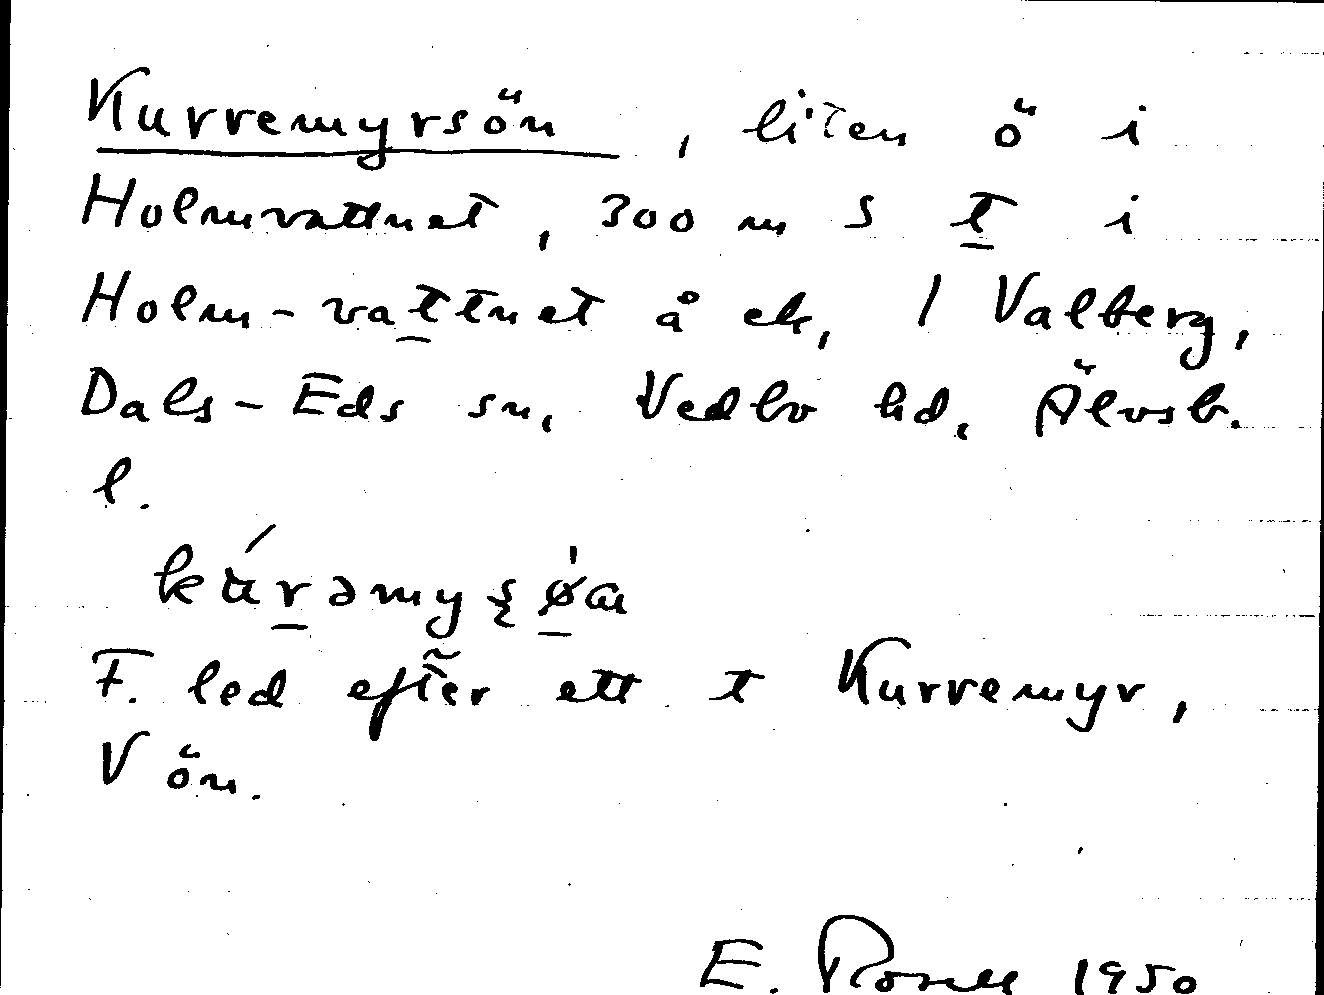 Kurremyrsön, liten ö i
Holmvattnet, 300 m S t i
Holm-vattnet å ek, 1 Valberg,
Dals-Eds sn, Vedbo hd, Älvsb.
l.
F. led efter ett t Kurremyr,
V ön.
E. 1950